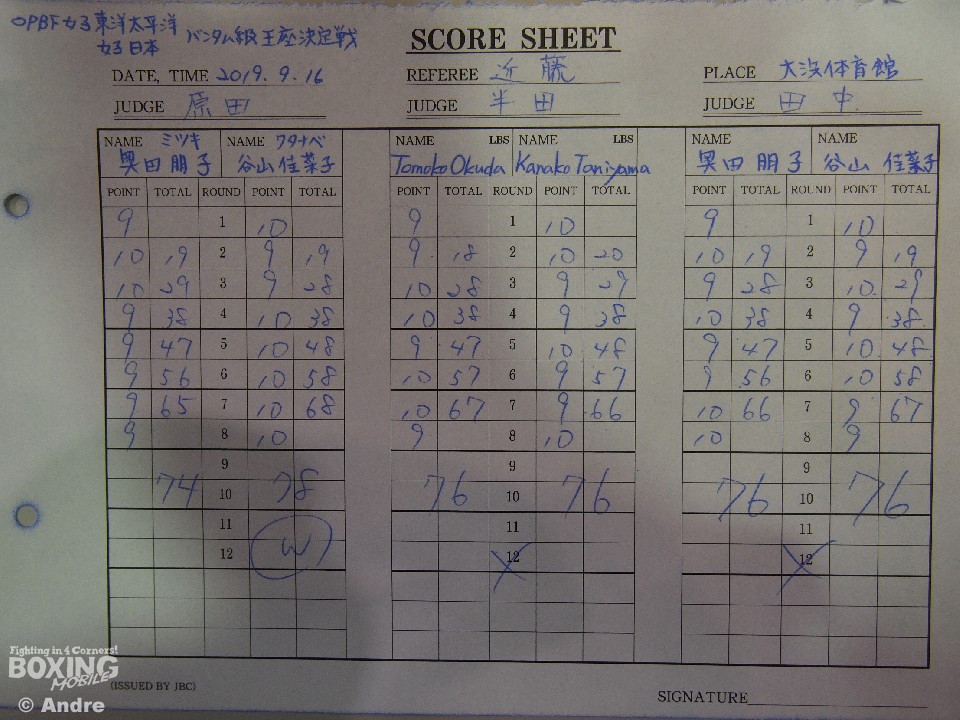 OPBF女子東洋太平洋
女子日本 バンタム級王座決定戦
SCORE SHEET
DATE, TIME 2019.9.16 REFEREE 近藤 PLACE 大浜体育館
JUDGE 原田 JUDGE 半田 JUDGE 田中
NAME ミツキ NAME ワタナベ NAME LBS NAME LBS NAME NAME
奥田朋子 谷山佳菜子 Tomoko Okuda Kanako Taniyama 奥田朋子 谷山佳菜子
POINT TOTAL ROUND POINT TOTAL POINT TOTAL ROUND POINT TOTAL POINT TOTAL ROUND POINT TOTAL
9 1 10 9 1 10 9 1 10
10 19 2 9 19 9 18 2 10 20 10 19 2 9 19
10 29 3 9 28 10 28 3 9 29 9 28 3 10 29
9 38 4 10 38 10 38 4 9 38 10 38 4 9 38
9 47 5 10 48 9 47 5 10 48 9 47 5 10 48
9 56 6 10 58 10 57 6 9 57 9 56 6 10 58
9 65 7 10 68 10 67 7 9 66 10 66 7 9 67
9 8 10 9 8 10 10 8 9
9 9 9
74 10 78 76 10 76 76 10 76
11 11 11
12 W 12 12
Fighting in 4 Corners!
BOXING
MOBILE
(ISSUED BY JBC)
SIGNATURE
© Andre